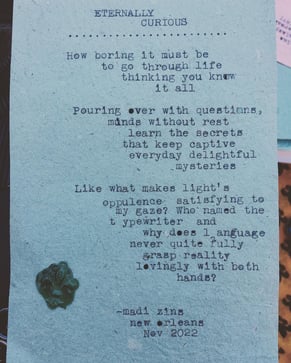 ETERNALLY
CURIOUS
How boring it must be
to go through life
thinking you know
it all
Pouring over with questions,
minds without rest
learn the secrets
that keep captive
everyday delightful
mysteries
Like what makes light's
oppulence satisfying to
my gaze? Who named the
typewriter and
why does language
never quite fully
grasp reality
lovingly with both
hands?
-madi zins
new orleans
Nov 2022